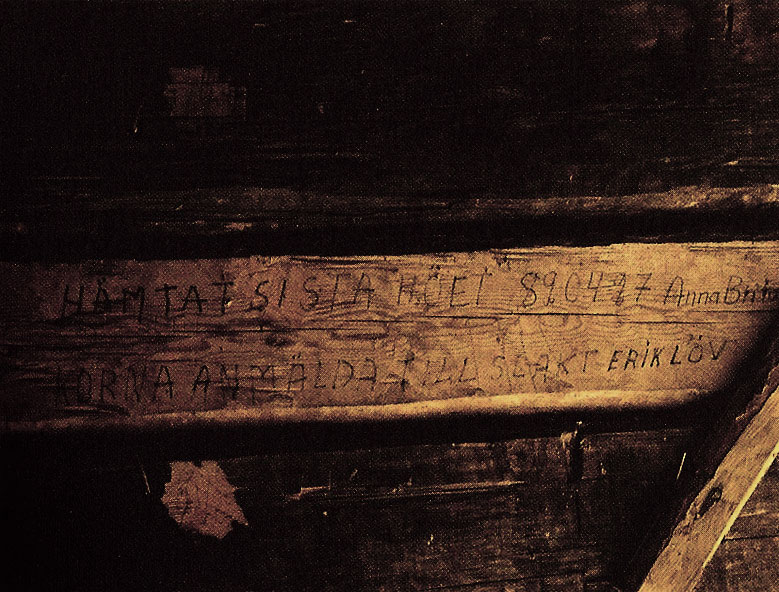 HÄMTAT SISTA HÖET 890427 Anna Brita
KORNA ANMÄLDA TILL SLAKT ERIK LÖV